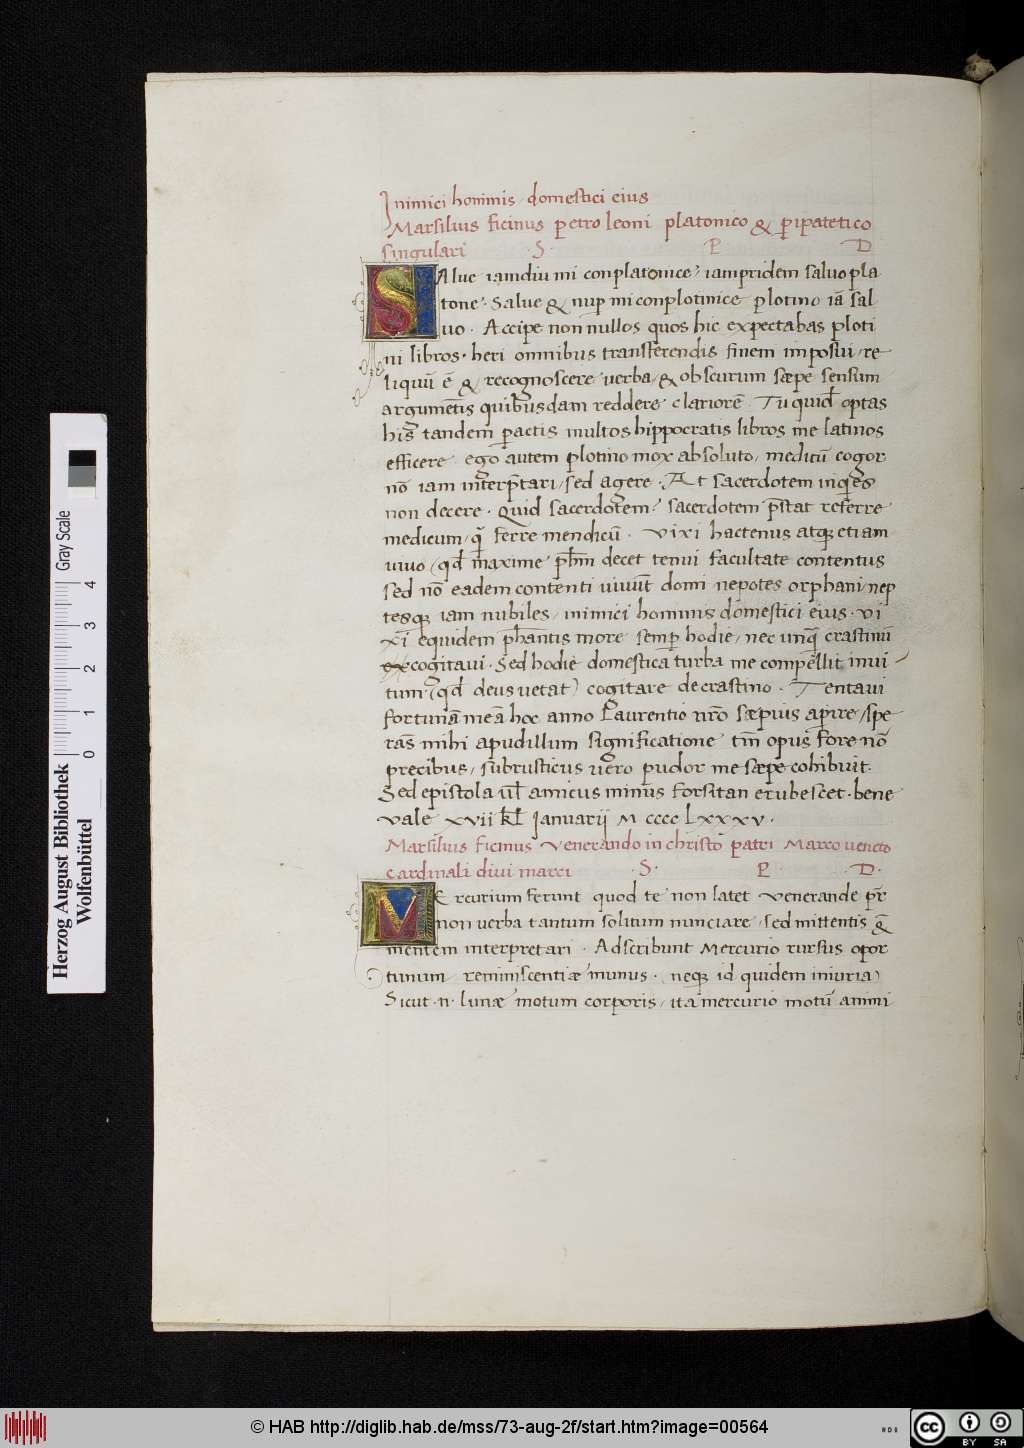 Inimici hominis domestici eius
Marsilius ficinus petro leoni platonico & peripatetico
singulari · S · P · D
SAlue iamdiu mi conplatonice? iampridem saluo pla
tone? Salue & nup mi conplotinice plotino iā sal
uo · Accipe non nullos quos hic expectabas ploti
ni libros · heri omnibus transferendis finem imposui / re
liquū ē & recognoscere uerba / & obscurum sæpe sensum
argumētis quibusdam reddere clariorē · Tu quid optas
his tandem pactis multos hippocratis libros me latinos
efficere ego autem plotino mox absoluto / medicū cogor
nō iam interp̄tari / sed agere · At sacerdotem inquies
non decere · Quid sacerdotem? sacerdotem p̄stat referre
medicum / q̄ ferre mendicū · vixi hactenus atq; etiam
uiuo / qd̄ maxime ph̄m decet tenui facultate contentus
sed nō eadem contenti uiuūt domi nepotes orphani / nep
tesq; iam nubiles / inimici hominis domestici eius · vi
xi equidem ph̄antis more semp hodie / nec unq̄ crastinū
excogitaui · Sed hodie domestica turba me compellit inui
tum (qd̄ deus uetat) cogitare de crastino · Tentaui
fortunā meā hoc anno Laurentio nr̄o sæpius aperire / spe
rās mihi apud illum significatione tm̄ opus fore nō
precibus / subrusticus uero pudor me sæpe cohibuit
Sed epistola ul̄ amicus minus forsitan erubescet · bene
vale xvii kl̄ Januarii M cccc Lxxxv ·
Marsilius ficinus venerando in christo patri Marco veneto
cardinali diui marci · S · P · D ·
MErcurium ferunt quod te non latet venerande pr̄
non uerba tantum solitum nunciare / sed mittentis &
mentem interpretari · Adscribunt Mercurio rursus opor
tunum reminiscentiæ munus · neq; id quidem iniuria
Sicut · n · lunæ motum corporis / ita mercurio motū animi
Herzog August Bibliothek
Wolfenbüttel
Gray Scale
0 1 2 3 4
© HAB http://diglib.hab.de/mss/73-aug-2f/start.htm?image=00564
cc BY SA